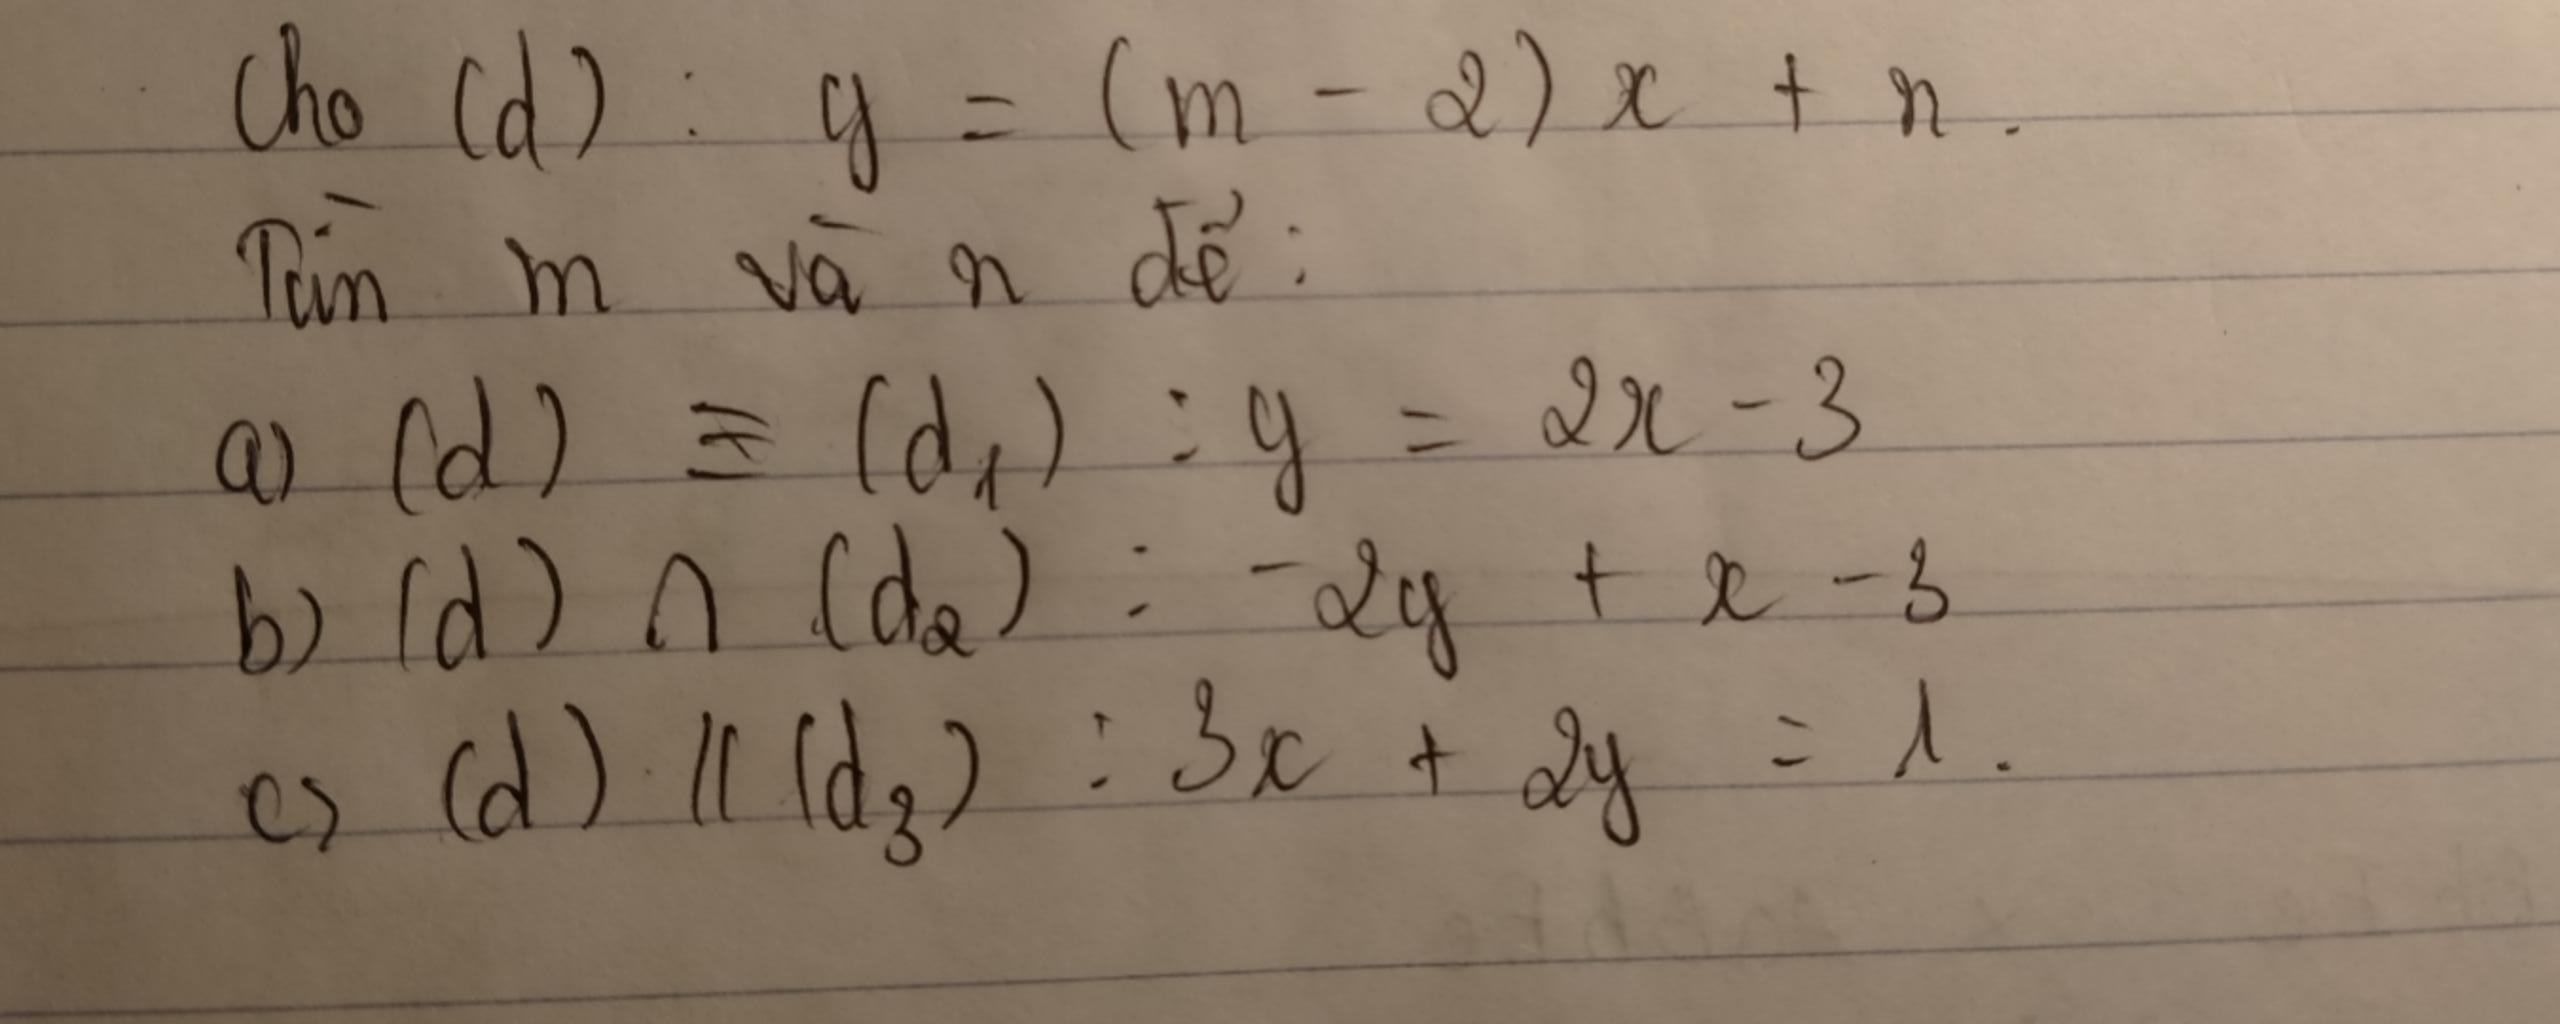 Cho (d) : y = (m - 2) x + n .
Tìm m và n để :
a) (d) ≡ (d₁) : y = 2x - 3
b) (d) ∩ (d₂) : -2y + x - 3
c) (d) // (d₃) : 3x + 2y = 1 .